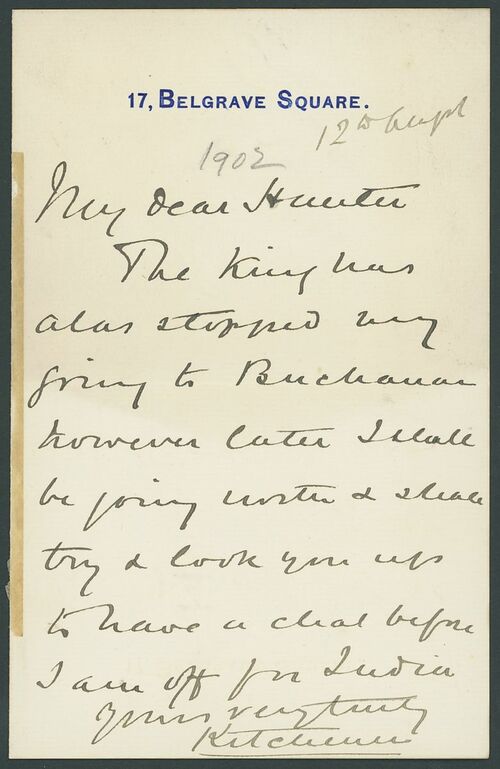 17, BELGRAVE SQUARE.
12th August
1902
My dear Hunter
The King has
alas stopped my
going to Buchanan
however later I shall
be going north & shall
try & look you up
to have a chat before
I am off for India
Yours very truly
Kitchener